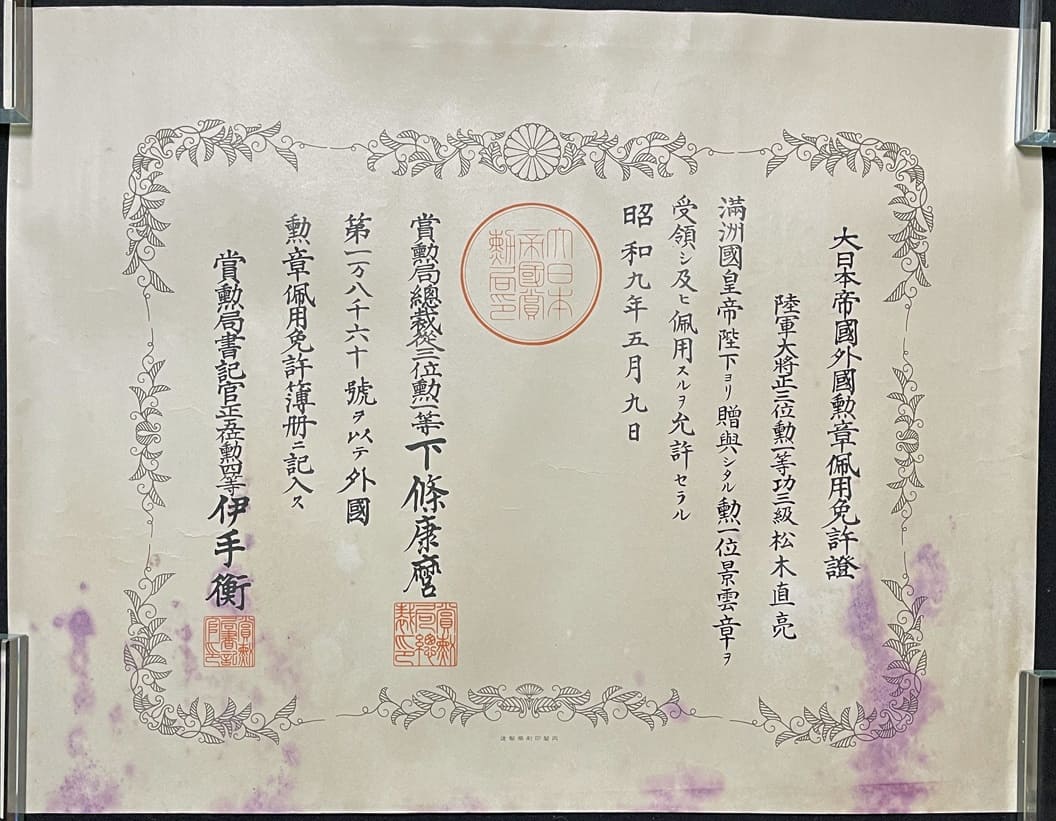 大日本帝國外國勲章佩用免許證
陸軍大將正三位勲一等功三級松木直亮
滿洲國皇帝陛下ヨリ贈與シタル勲一位景雲章ヲ
受領シ及ヒ佩用スルヲ允許セラル
昭和九年五月九日
大日本
帝國賞
勲局印
賞勲局總裁從三位勲一等下條康麿
賞勲
局總
裁印
第一万八千六十號ヲ以テ外國
勲章佩用免許簿册ニ記入ス
賞勲局書記官正五位勲四等伊手衡
賞勲
局書記
官印
內閣印刷局製造